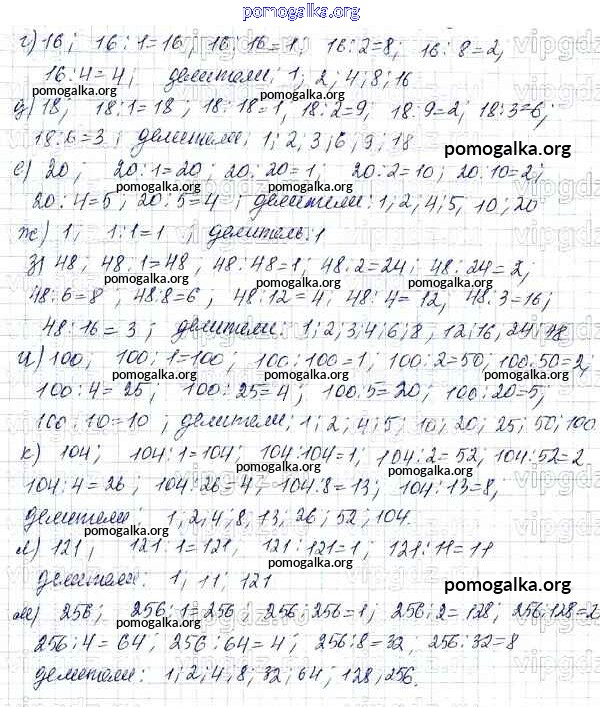 pomogalka.org
г) 16; 16:1=16, 16:16=1; 16:2=8, 16:8=2,
16:4=4; делители: 1; 2; 4; 8; 16
д) 18; 18:1=18; 18:18=1, 18:2=9, 18:9=2; 18:3=6;
18:6=3; делители: 1; 2; 3; 6; 9; 18
е) 20; 20:1=20; 20:20=1; 20:2=10; 20:10=2;
20:4=5; 20:5=4; делители: 1; 2; 4; 5; 10; 20
ж) 1; 1:1=1; делитель: 1
з) 48; 48:1=48; 48:48=1; 48:2=24; 48:24=2;
48:6=8; 48:8=6; 48:12=4; 48:4=12; 48:3=16;
48:16=3; делители: 1; 2; 3; 4; 6; 8; 12; 16, 24; 48
и) 100; 100:1=100; 100:100=1; 100:2=50; 100:50=2;
100:4=25; 100:25=4; 100:5=20; 100:20=5;
100:10=10; делители; 1; 2; 4; 5; 10; 20; 25; 50; 100
к) 104; 104:1=104; 104:104=1; 104:2=52; 104:52=2
104:4=26; 104:26=4; 104:8=13; 104:13=8;
делители: 1, 2, 4; 8; 13; 26; 52; 104.
л) 121; 121:1=121, 121:121=1; 121:11=11
делители: 1; 11; 121
м) 256; 256:1=256; 256:256=1; 256:2=128; 256:128=2
256:4=64; 256:64=4; 256:8=32; 256:32=8
делители: 1; 2; 4; 8; 32; 64; 128; 256.